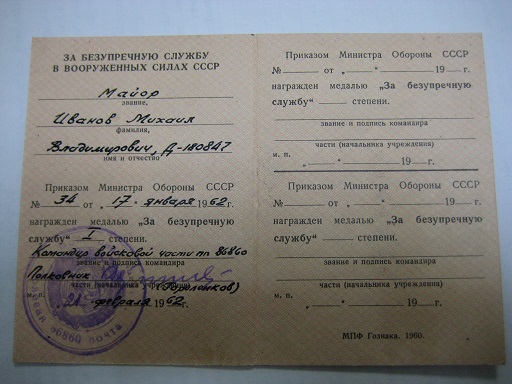 ЗА БЕЗУПРЕЧНУЮ СЛУЖБУ
В ВООРУЖЕННЫХ СИЛАХ СССР
Майор
звание,
Иванов Михаил
фамилия,
Владимирович, Д-180847
имя и отчество
Приказом Министра Обороны СССР
№ 34 от „17„ января 1962 г.
награжден медалью „За безупречную
службу“ I степени.
Командир войсковой части пп 86860
звание и подпись командира
Полковник
части (начальника учреждения)
м. п. „21„ февраля 1962 г.
полевая 86860 почта
Приказом Министра Обороны СССР
№ от „ “ 19 г.
награжден медалью „За безупречную
службу“ степени.
звание и подпись командира
части (начальника учреждения)
м. п. „ “ 19 г.
Приказом Министра Обороны СССР
№ от „ “ 19 г.
награжден медалью „За безупречную
службу“ степени.
звание и подпись командира
части (начальника учреждения)
м. п. „ “ 19 г.
МПФ Гознака. 1960.